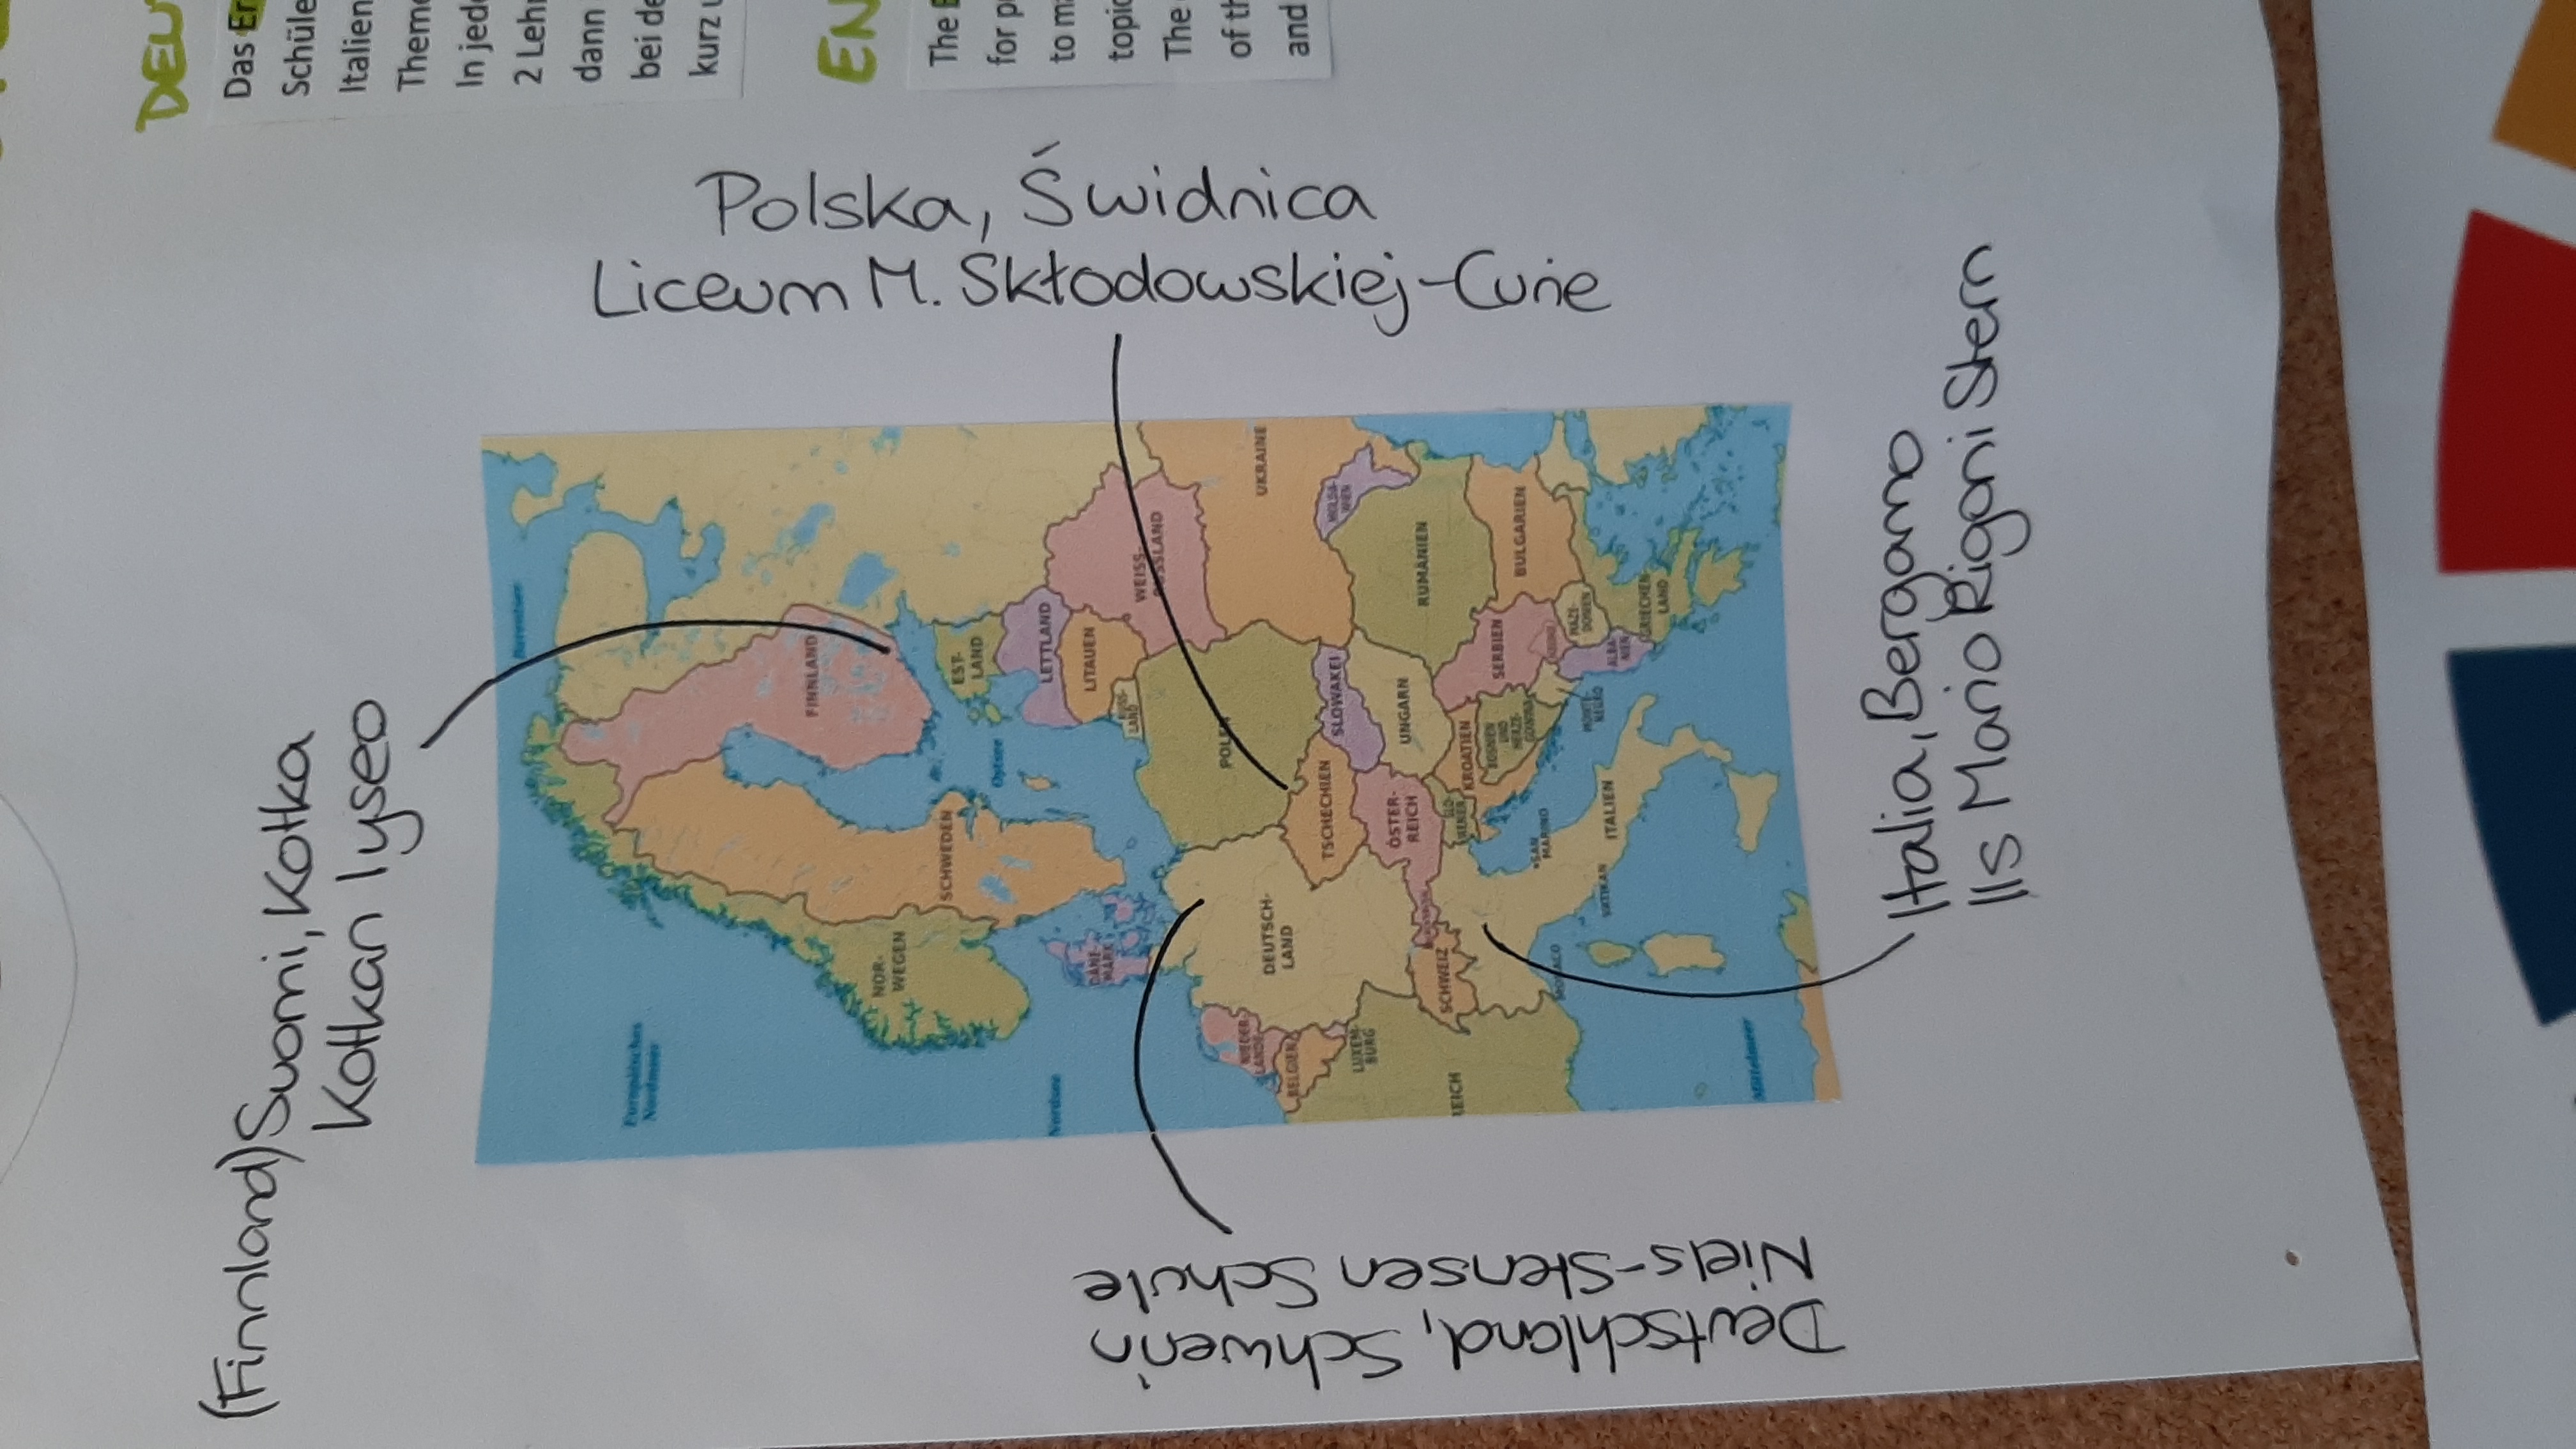 DEU
Das Er
Schüle
Italien
Them
In jede
2 Lehr
dann
bei de
kurz u
EN
The E
for p
to m
topic
The
of th
and
(Finnland) Suomi, Kotka
Kotkan lyseo
Polska, Świdnica
Liceum M. Skłodowskiej-Curie
Italia, Bergamo
IIS Mario Rigoni Stern
Deutschland, Schwerin
Niels-Stensen Schule
Europäisches
Nordmeer
Nordsee
Ostsee
Mittelmeer
NOR-
WEGEN
SCHWEDEN
FINNLAND
EST-
LAND
LETTLAND
LITAUEN
RUSS-
LAND
WEISS-
RUSSLAND
UKRAINE
MOLDA-
WIEN
DÄNE-
MARK
NIEDER-
LANDE
BELGIEN
LUXEM-
BURG
REICH
DEUTSCH-
LAND
POLEN
TSCHECHIEN
SLOWAKEI
ÖSTER-
REICH
SCHWEIZ
UNGARN
RUMÄNIEN
BULGARIEN
SERBIEN
KROATIEN
BOSNIEN
UND
HERZE-
GOWINA
MONTE-
NEGRO
MAZE-
DONIEN
ALBA-
NIEN
GRIECHEN-
LAND
SAN
MARINO
ITALIEN
VATIKAN
MONACO